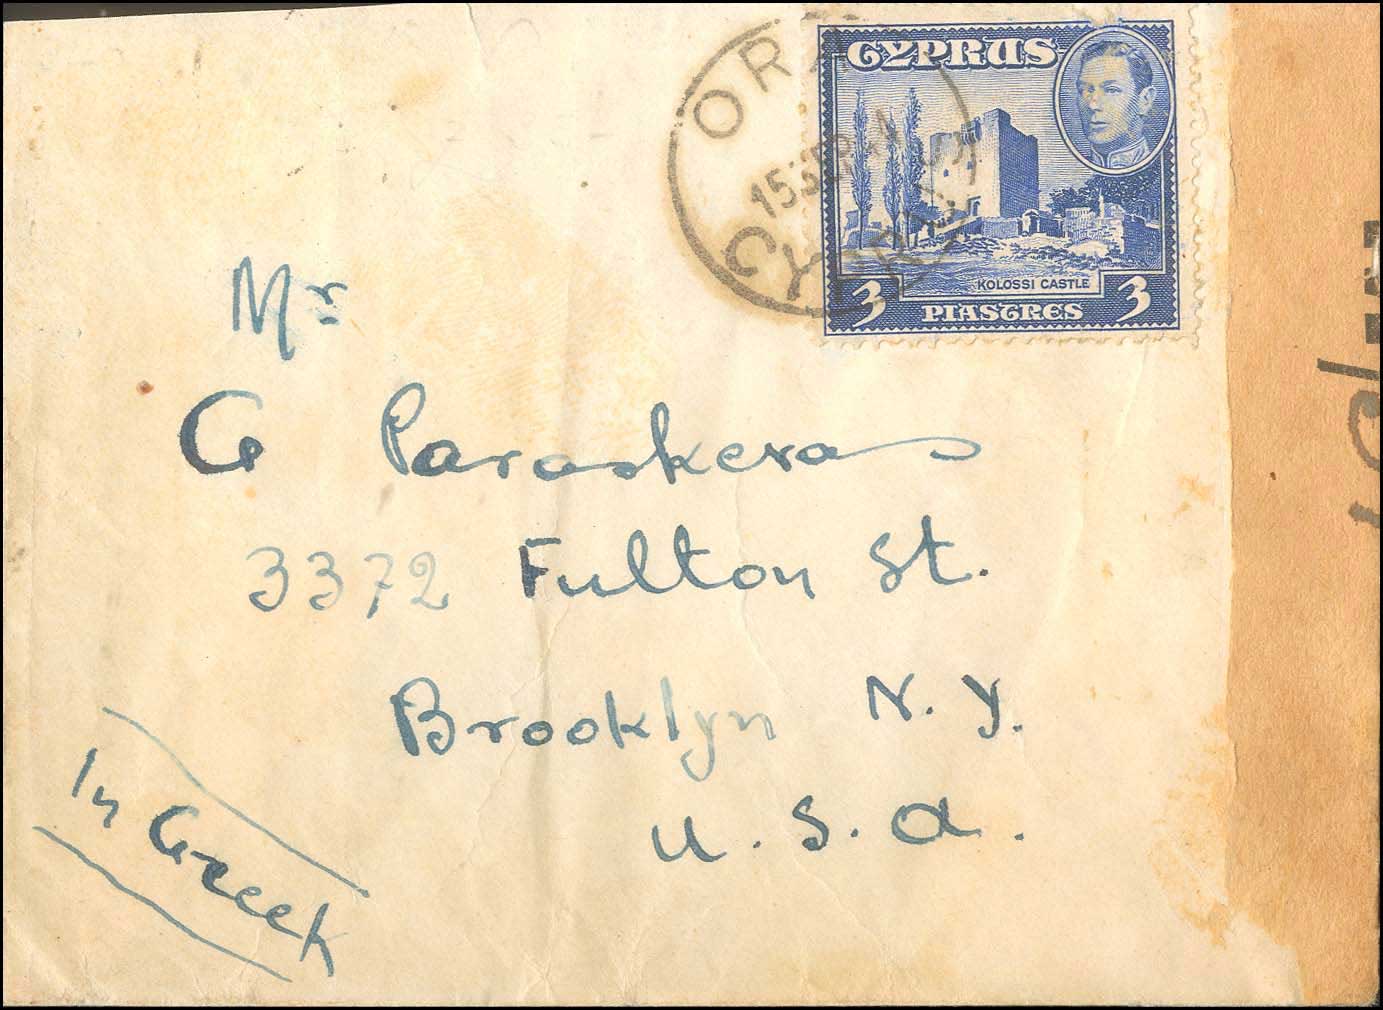 CYPRUS
KOLOSSI CASTLE
3 PIASTRES 3
CYPRUS
Mr
G Paraskeva
3372 Fulton St.
Brooklyn N.Y.
U.S.A.
In Greek